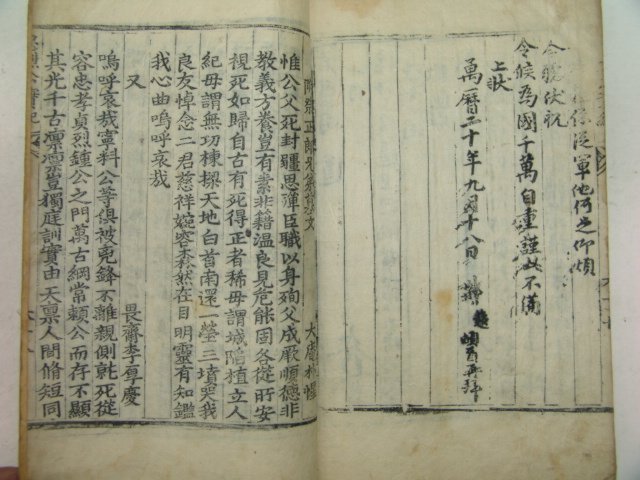 從軍他何足仰煩
令候爲國千萬自重謹此不備
上狀
萬曆二十年九月十八日
再拜
惟公父死封疆思殫臣職以身殉父成厥順德非
敎義方養豈有素非籍溫良見危能固各從所安
視死如歸自古有死得正者稀毋謂城陷植立人
紀毋謂無功棟樑天地白首南還一塋三墳哭我
良友悼念二君慈祥婉容森然在目明靈有知鑑
我心曲嗚呼哀哉
又
畏齋李厚慶
嗚呼哀哉寧料公等俱被兇鋒不離親側就死從
容忠孝貞烈鍾公之門萬古綱常賴公而存不顯
其光千古凜凜豈獨庭訓實由天稟人間脩短同